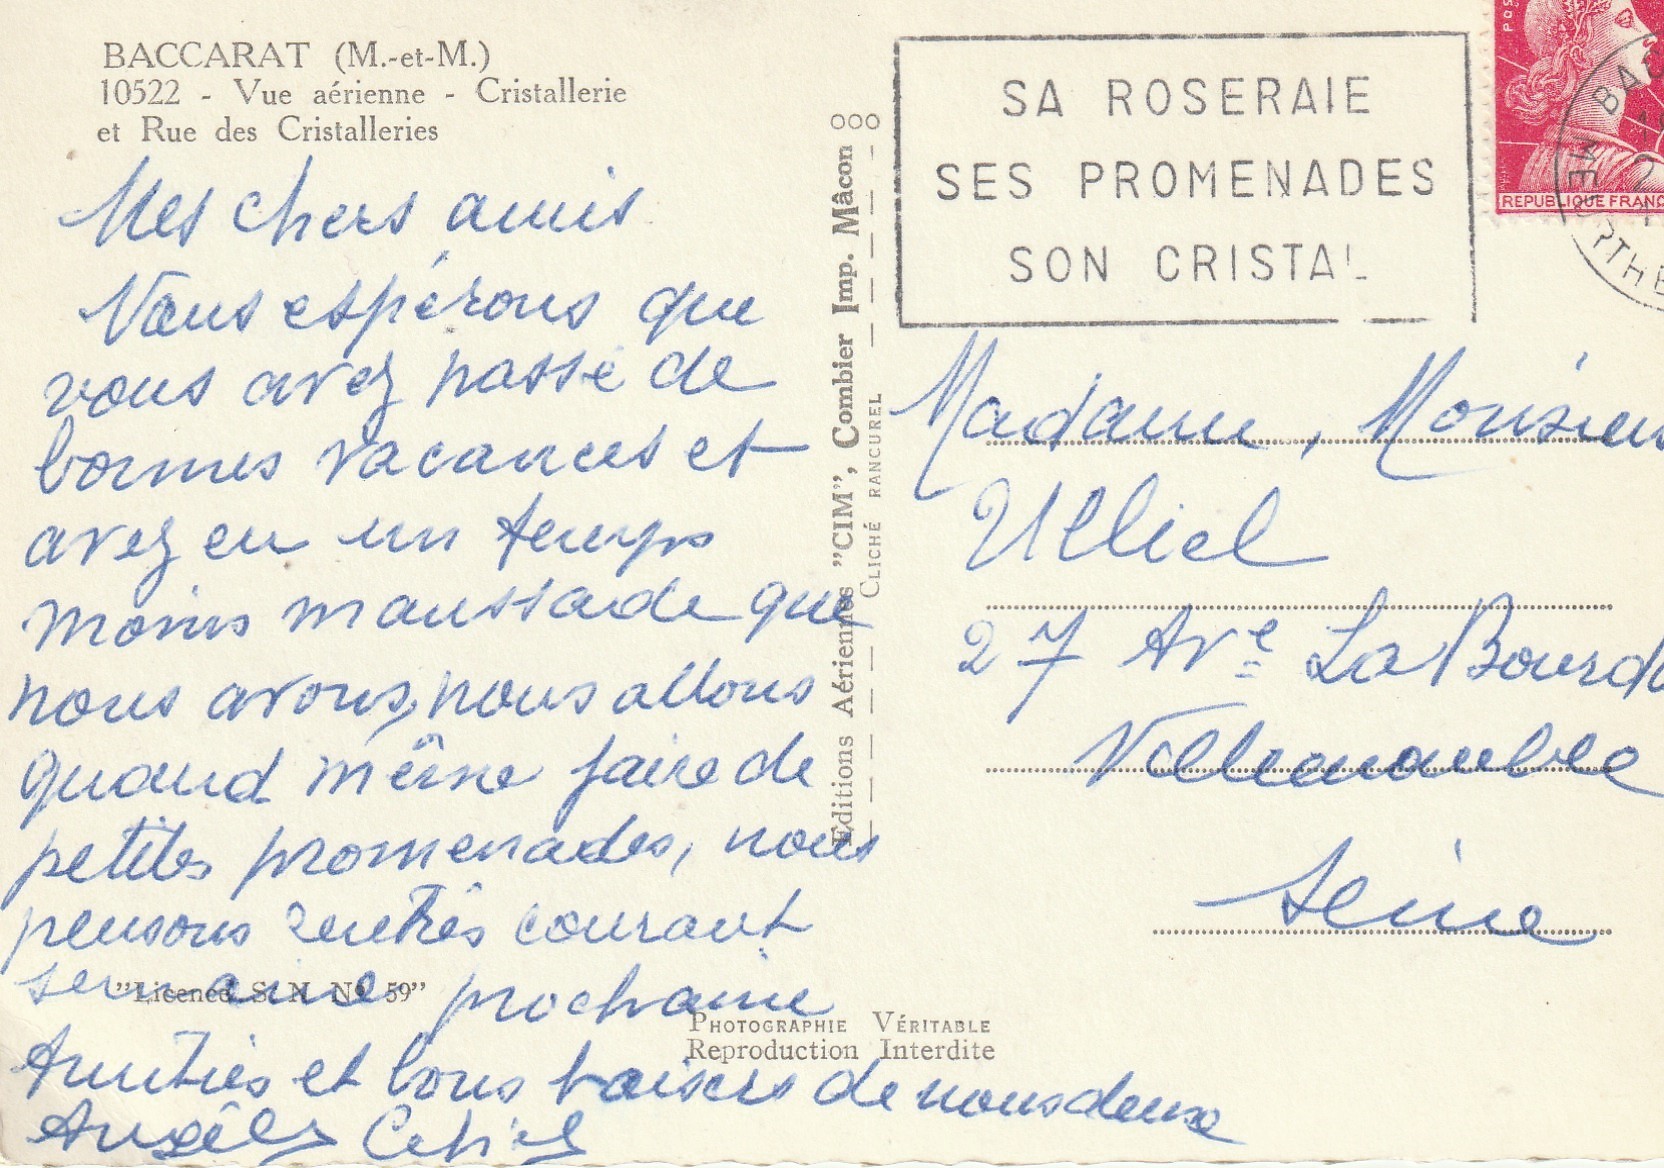 BACCARAT (M.-et-M.)
10522 - Vue aérienne - Cristallerie
et Rue des Cristalleries
Mes chers amis
Nous espérons que
vous avez passé de
bonnes vacances et
avez eu un temps
moins maussade que
nous avons, nous allons
quand même faire de
petites promenades, nous
pensons rentrés courant
semaine prochaine
Amitiés et bons baisers de nous deux
Angèle
"Licence S. N. No 59"
Editions Aériennes "CIM", Combier Imp. Mâcon
CLICHÉ RANCUREL
PHOTOGRAPHIE VÉRITABLE
Reproduction Interdite
SA ROSERAIE
SES PROMENADES
SON CRISTAL
POS
REPUBLIQUE FRANC
BA
MEURTHE
Madame, Monsieur
Ulliel
27 Ave La Bourd
Villemomble
Seine